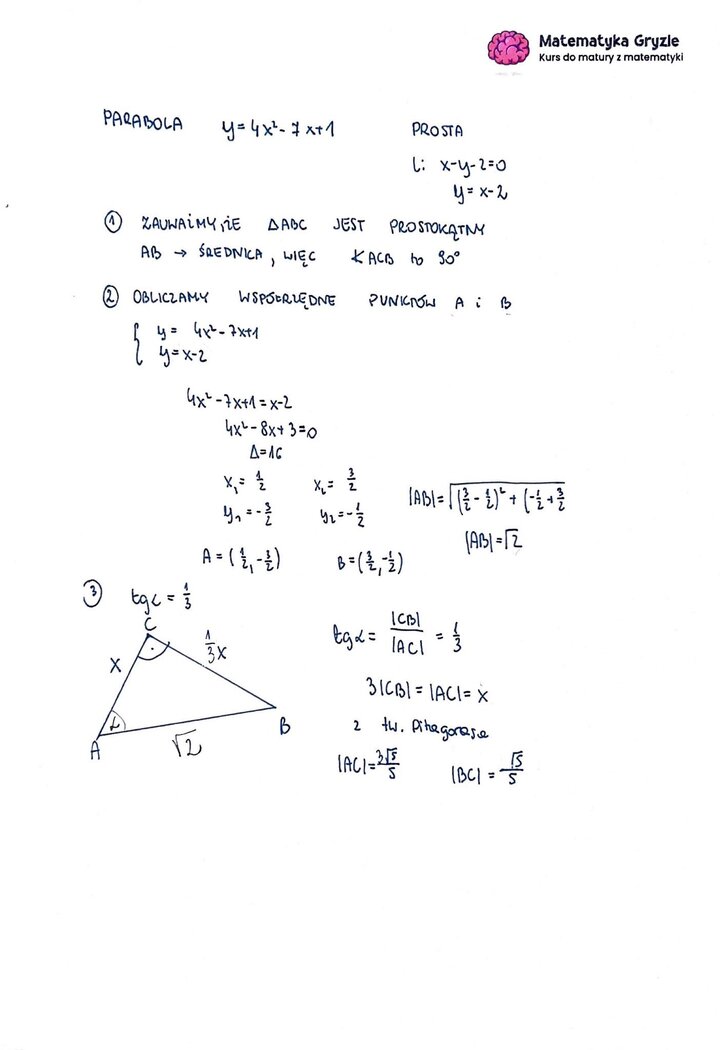 Matematyka Gryzie
Kurs do matury z matematyki
PARABOLA y=4x²-7x+1 PROSTA
l: x-y-2=0
y=x-2
① ZAUWAŻMY, ŻE ΔABC JEST PROSTOKĄTNY
AB → ŚREDNICA, WIĘC ∢ACB to 90°
② OBLICZAMY WSPÓŁRZĘDNE PUNKTÓW A i B
{ y= 4x²-7x+1
y=x-2
4x²-7x+1=x-2
4x²-8x+3=0
Δ=16
x₁= 1/2 x₂= 3/2
y₁=-3/2 y₂=-1/2
|AB|=√(3/2-1/2)²+(-1/2+3/2
|AB|=√2
A=(1/2,-3/2) B=(3/2,-1/2)
③ tgα=1/3
C
x 1/3x
α
A √2 B
tgα= |CB|/|AC| = 1/3
3|CB|=|AC|=x
z tw. Pitagorasa
|AC|=3√5/5 |BC|=√5/5